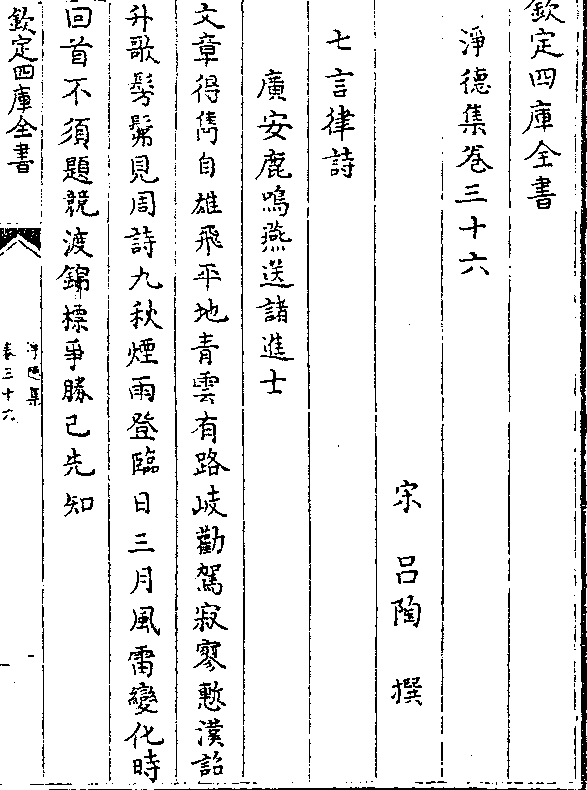 欽定四庫全書
淨德集卷三十六
宋 呂陶 撰
七言律詩
廣安鹿鳴燕送諸進士
文章得雋自雄飛平地青雲有路岐勸駕寂寥慙漢詔
升歌髣髴見周詩九秋煙雨登臨日三月風雷變化時
回首不須題競渡錦標爭勝已先知
欽定四庫全書
淨德集
卷三十六